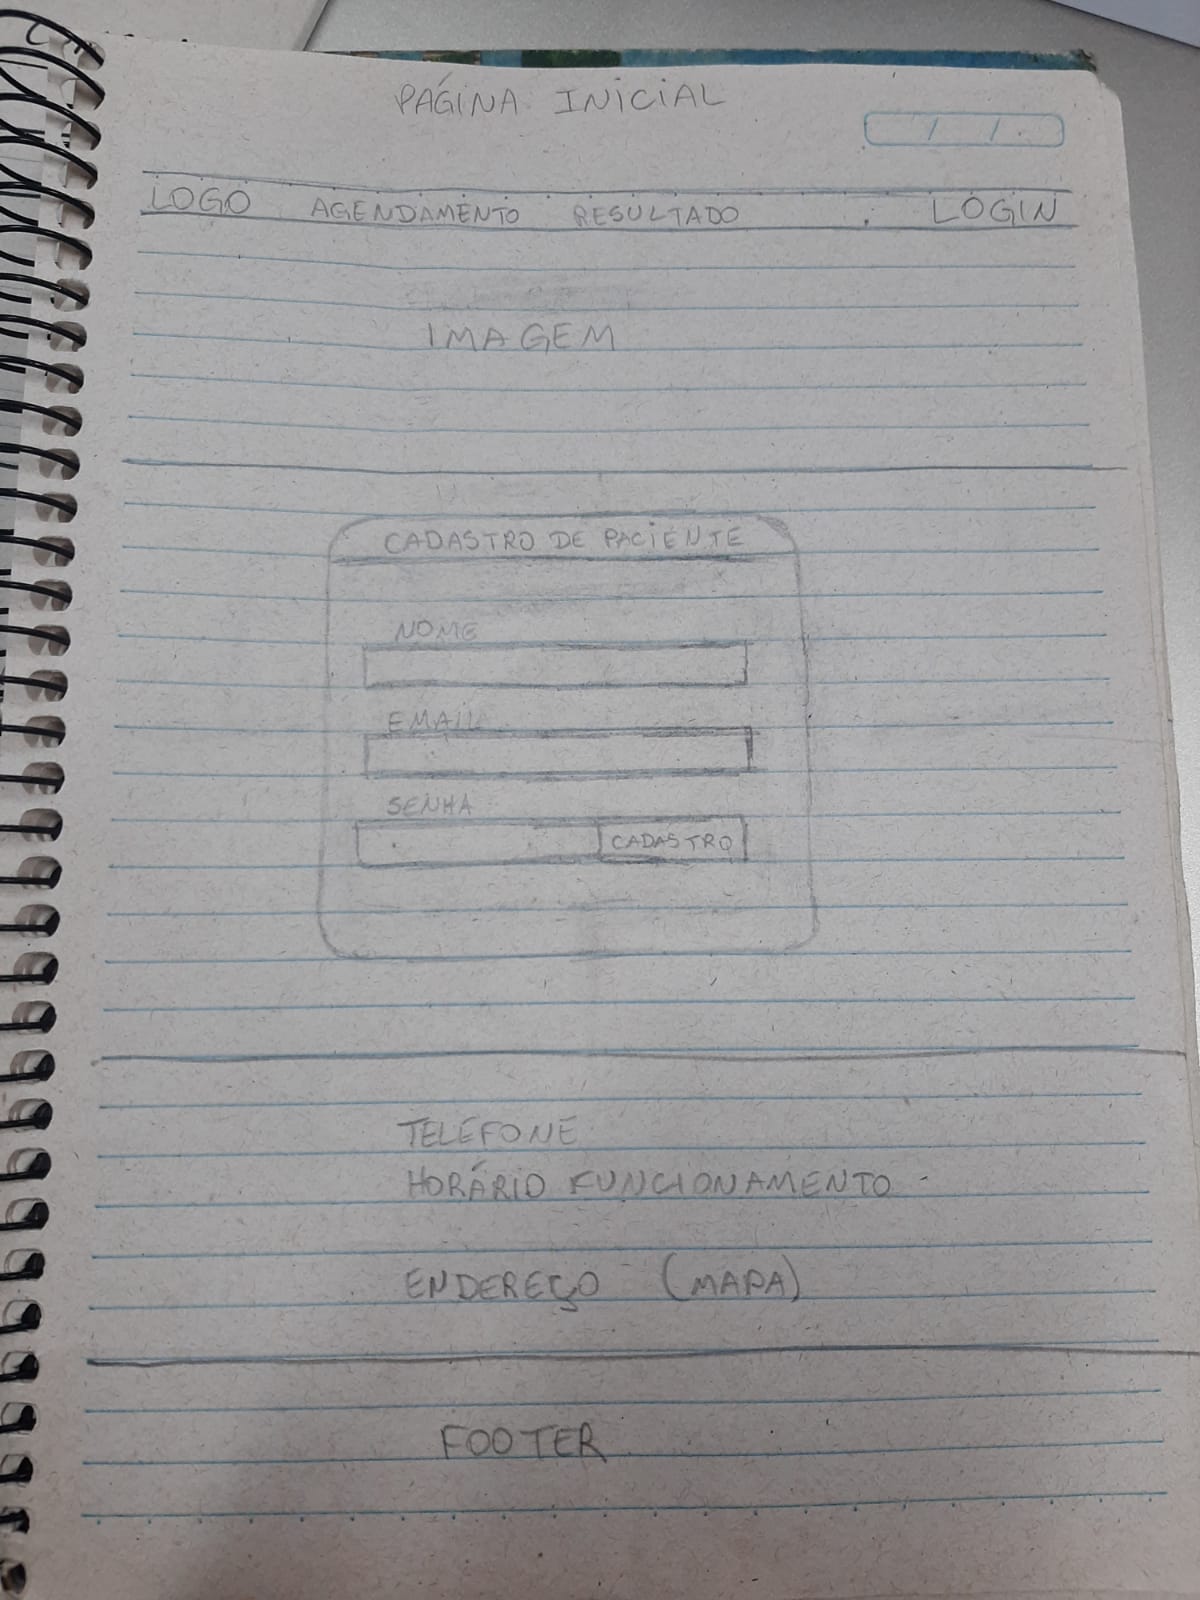 PÁGINA INICIAL
LOGO AGENDAMENTO RESULTADO LOGIN
IMAGEM
CADASTRO DE PACIENTE
NOME
EMAIL
SENHA
CADASTRO
TELEFONE
HORÁRIO FUNCIONAMENTO
ENDEREÇO (MAPA)
FOOTER